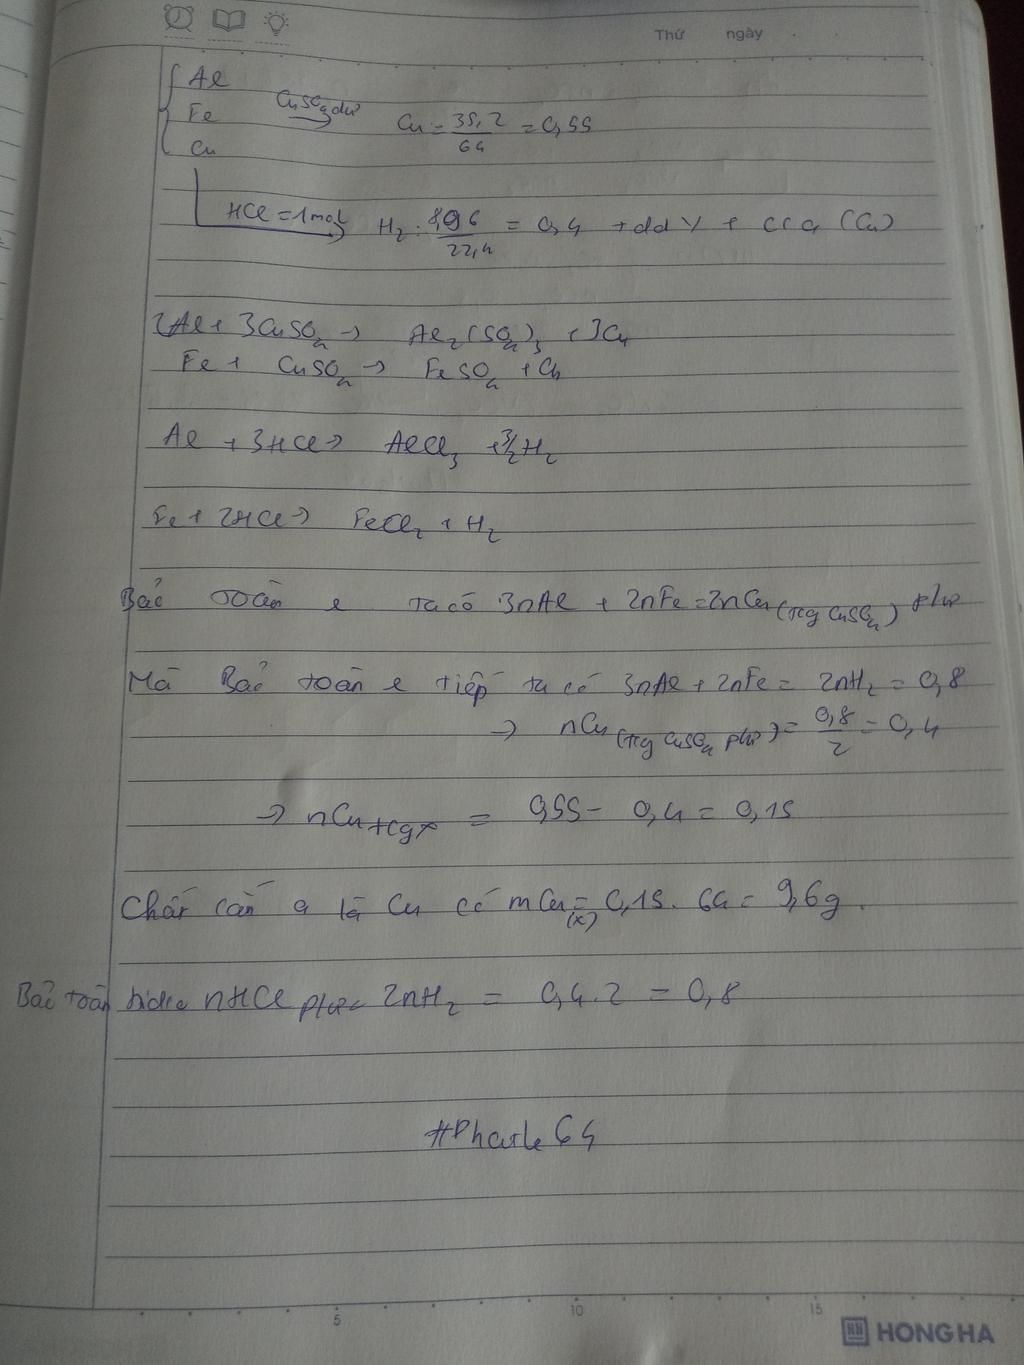 Thứ ngày
Al
Fe CuSO4 dư Cu = 35,2/64 = 0,55
Cu
HCl = 1mol H2: 8,96/22,4 = 0,4 + dd Y + cr a (Cu)
2Al + 3CuSO4 → Al2(SO4)3 + 3Cu
Fe + CuSO4 → FeSO4 + Cu
Al + 3HCl → AlCl3 + 3/2H2
Fe + 2HCl → FeCl2 + H2
Bảo toàn e ta có 3nAl + 2nFe = 2nCu (trg CuSO4) phư
Mà Bảo toàn e tiếp ta có 3nAl + 2nFe = 2nH2 = 0,8
→ nCu (trg CuSO4 phư) = 0,8/2 = 0,4
→ nCu trg X = 0,55 - 0,4 = 0,15
Chất rắn a là Cu có mCu (X) = 0,15. 64 = 9,6g.
Bảo toàn hidro nHCl phư = 2nH2 = 0,4.2 = 0,8
5 10 15
HONG HA